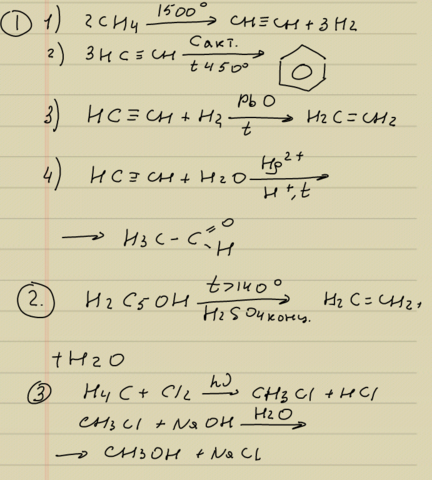 ① 1) 2CH4 —1500°→ CH≡CH + 3H2
2) 3HC≡CH —Cакт. t 450°→
3) HC≡CH + H2 —PbO t→ H2C=CH2
4) HC≡CH + H2O —Hg2+ H+, t→
→ H3C-C=O H
②. H2C5OH —t>140° H2SO4 конц.→ H2C=CH2+
+ H2O
③ H4C + Cl2 —hν→ CH3Cl + HCl
CH3Cl + NaOH —H2O→
→ CH3OH + NaCl